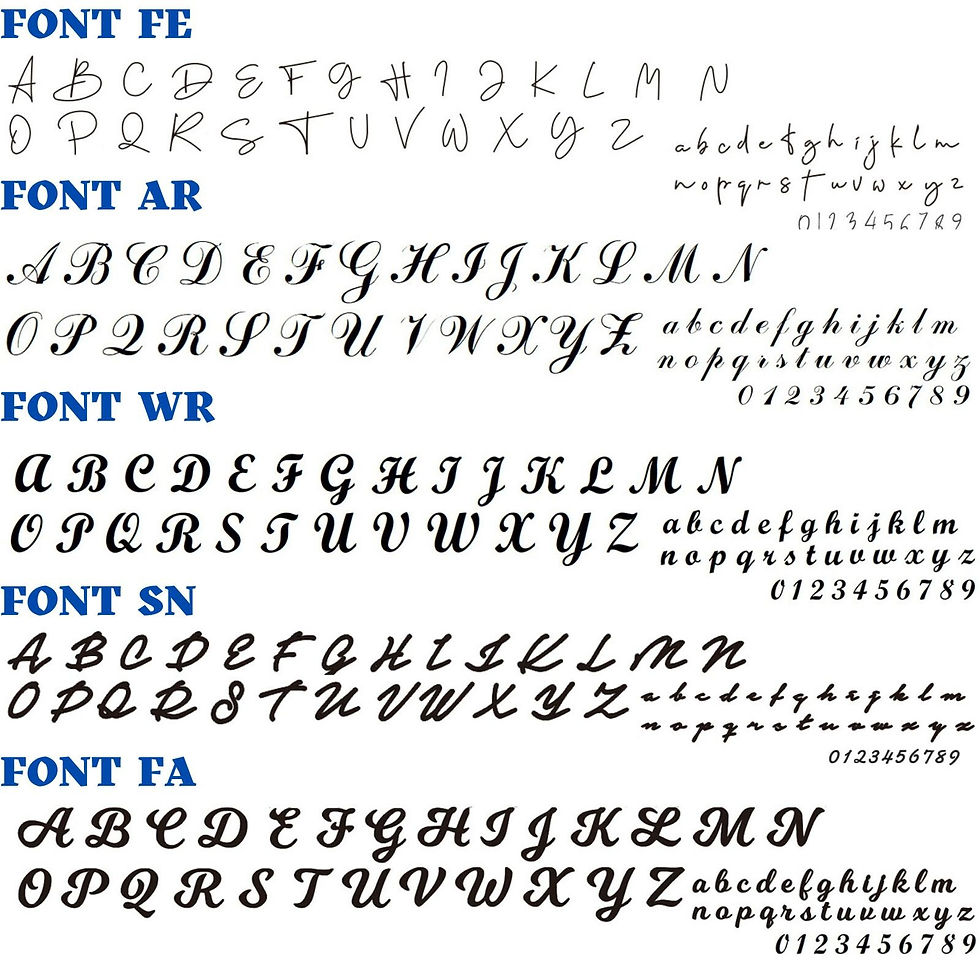 FONT FE
A B C D E F G H I J K L M N
O P Q R S T U V W X Y Z
a b c d e f g h i j k l m
n o p q r s t u v w x y z
0 1 2 3 4 5 6 7 8 9
FONT AR
A B C D E F G H I J K L M N
O P Q R S T U V W X Y Z
a b c d e f g h i j k l m
n o p q r s t u v w x y z
0 1 2 3 4 5 6 7 8 9
FONT WR
A B C D E F G H I J K L M N
O P Q R S T U V W X Y Z
a b c d e f g h i j k l m
n o p q r s t u v w x y z
0 1 2 3 4 5 6 7 8 9
FONT SN
A B C D E F G H I J K L M N
O P Q R S T U V W X Y Z
a b c d e f g h i j k l m
n o p q r s t u v w x y z
0 1 2 3 4 5 6 7 8 9
FONT FA
A B C D E F G H I J K L M N
O P Q R S T U V W X Y Z
a b c d e f g h i j k l m
n o p q r s t u v w x y z
0 1 2 3 4 5 6 7 8 9